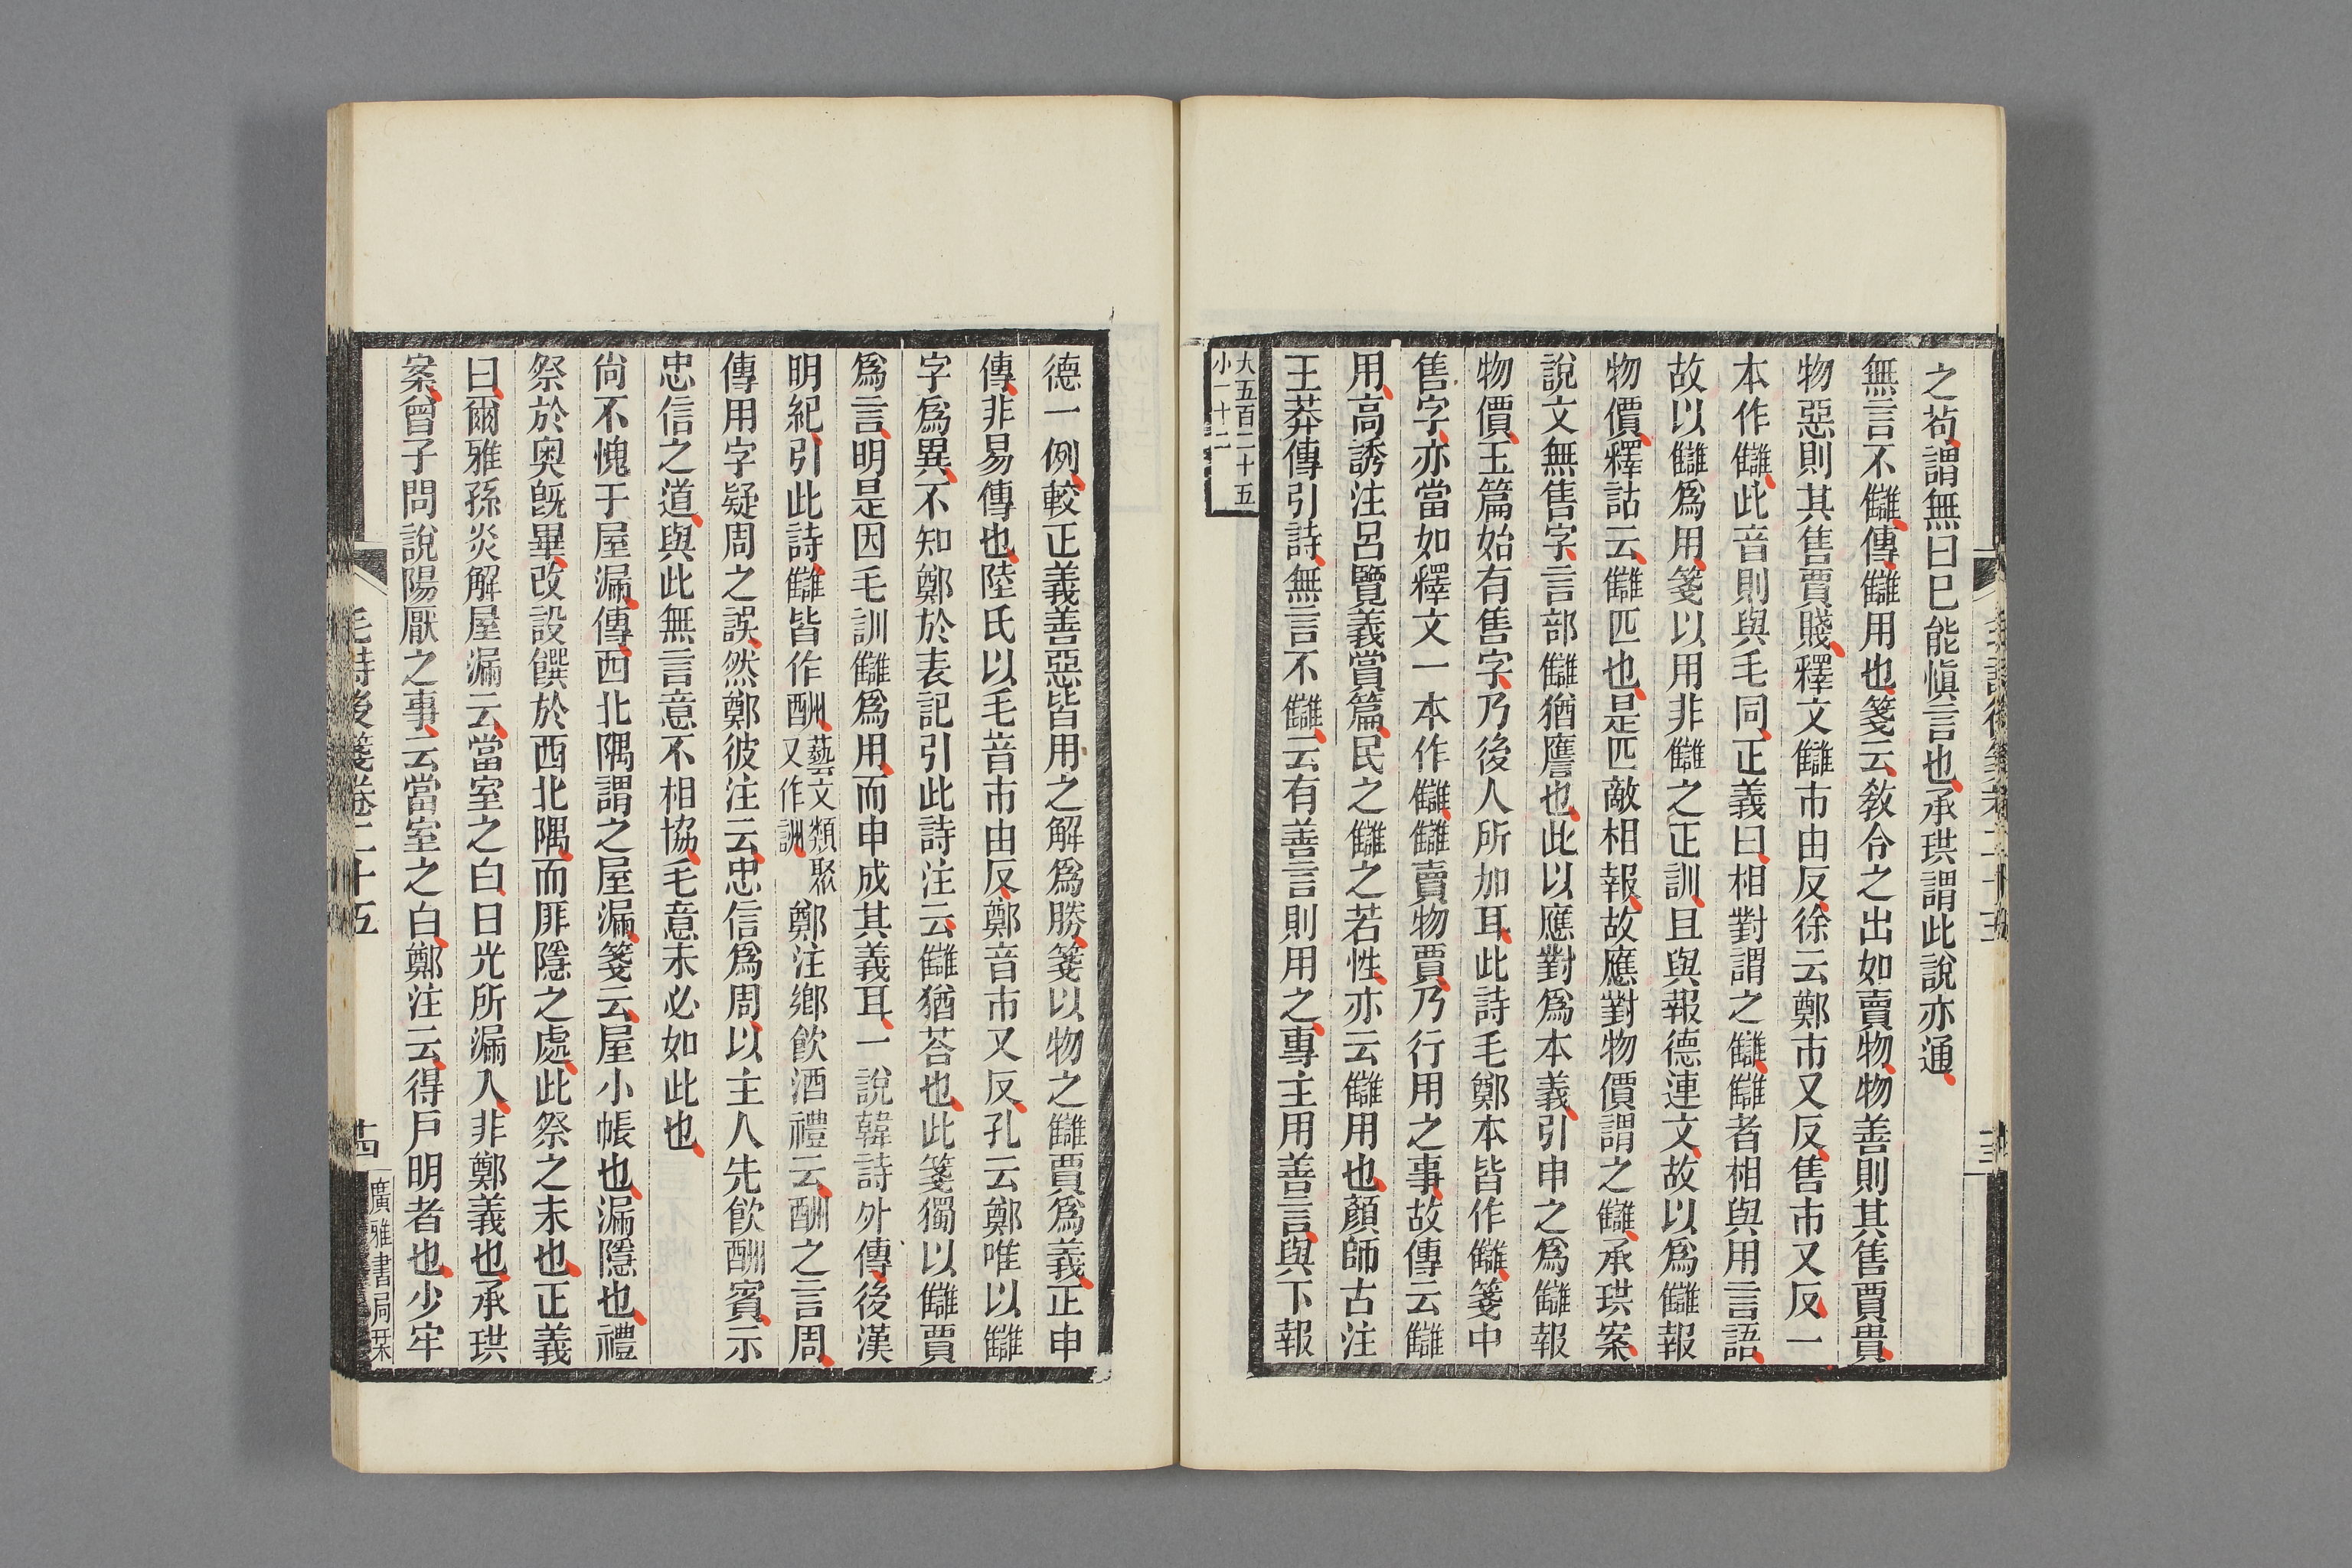 之苟謂無曰巳能愼言也承珙謂此說亦通
無言不讎傳讎用也箋云敎令之出如賣物物善則其售賈貴
物惡則其售賈賤釋文讎市由反徐云鄭市又反售市又反一
本作讎此音則與毛同正義曰相對謂之讎讎者相與用言語
故以讎爲用箋以用非讎之正訓且與報德連文故以爲讎報
物價釋詁云讎匹也是匹敵相報故應對物價謂之讎承珙案
說文無售字言部讎猶譍也此以應對爲本義引申之爲讎報
物價玉篇始有售字乃後人所加耳此詩毛鄭本皆作讎箋中
售字亦當如釋文一本作讎讎賣物賈乃行用之事故傳云讎
用高誘注呂覽義賞篇民之讎之若性亦云讎用也顏師古注
王莽傳引詩無言不讎云有善言則用之專主用善言與下報
大五百二十五
小一十二
德一例較正義善惡皆用之解爲勝箋以物之讎賈爲義正申
傳非易傳也陸氏以毛音市由反鄭音市又反孔云鄭唯以讎
字爲異不知鄭於表記引此詩注云讎猶荅也此箋獨以讎賈
爲言明是因毛訓讎爲用而申成其義耳一說韓詩外傳後漢
明紀引此詩讎皆作酬藝文類聚又作詶鄭注鄉飮酒禮云酬之言周
傳用字疑周之誤然鄭彼注云忠信爲周以主人先飮酬賓示
忠信之道與此無言意不相協毛意未必如此也
尙不愧于屋漏傳西北隅謂之屋漏箋云屋小帳也漏隱也禮
祭於奧旣畢改設饌於西北隅而厞隱之處此祭之末也正義
曰爾雅孫炎解屋漏云當室之白日光所漏入非鄭義也承珙
案曾子問說陽厭之事云當室之白鄭注云得戶明者也少牢
毛詩後箋卷二十五
廿四
廣雅書局栞